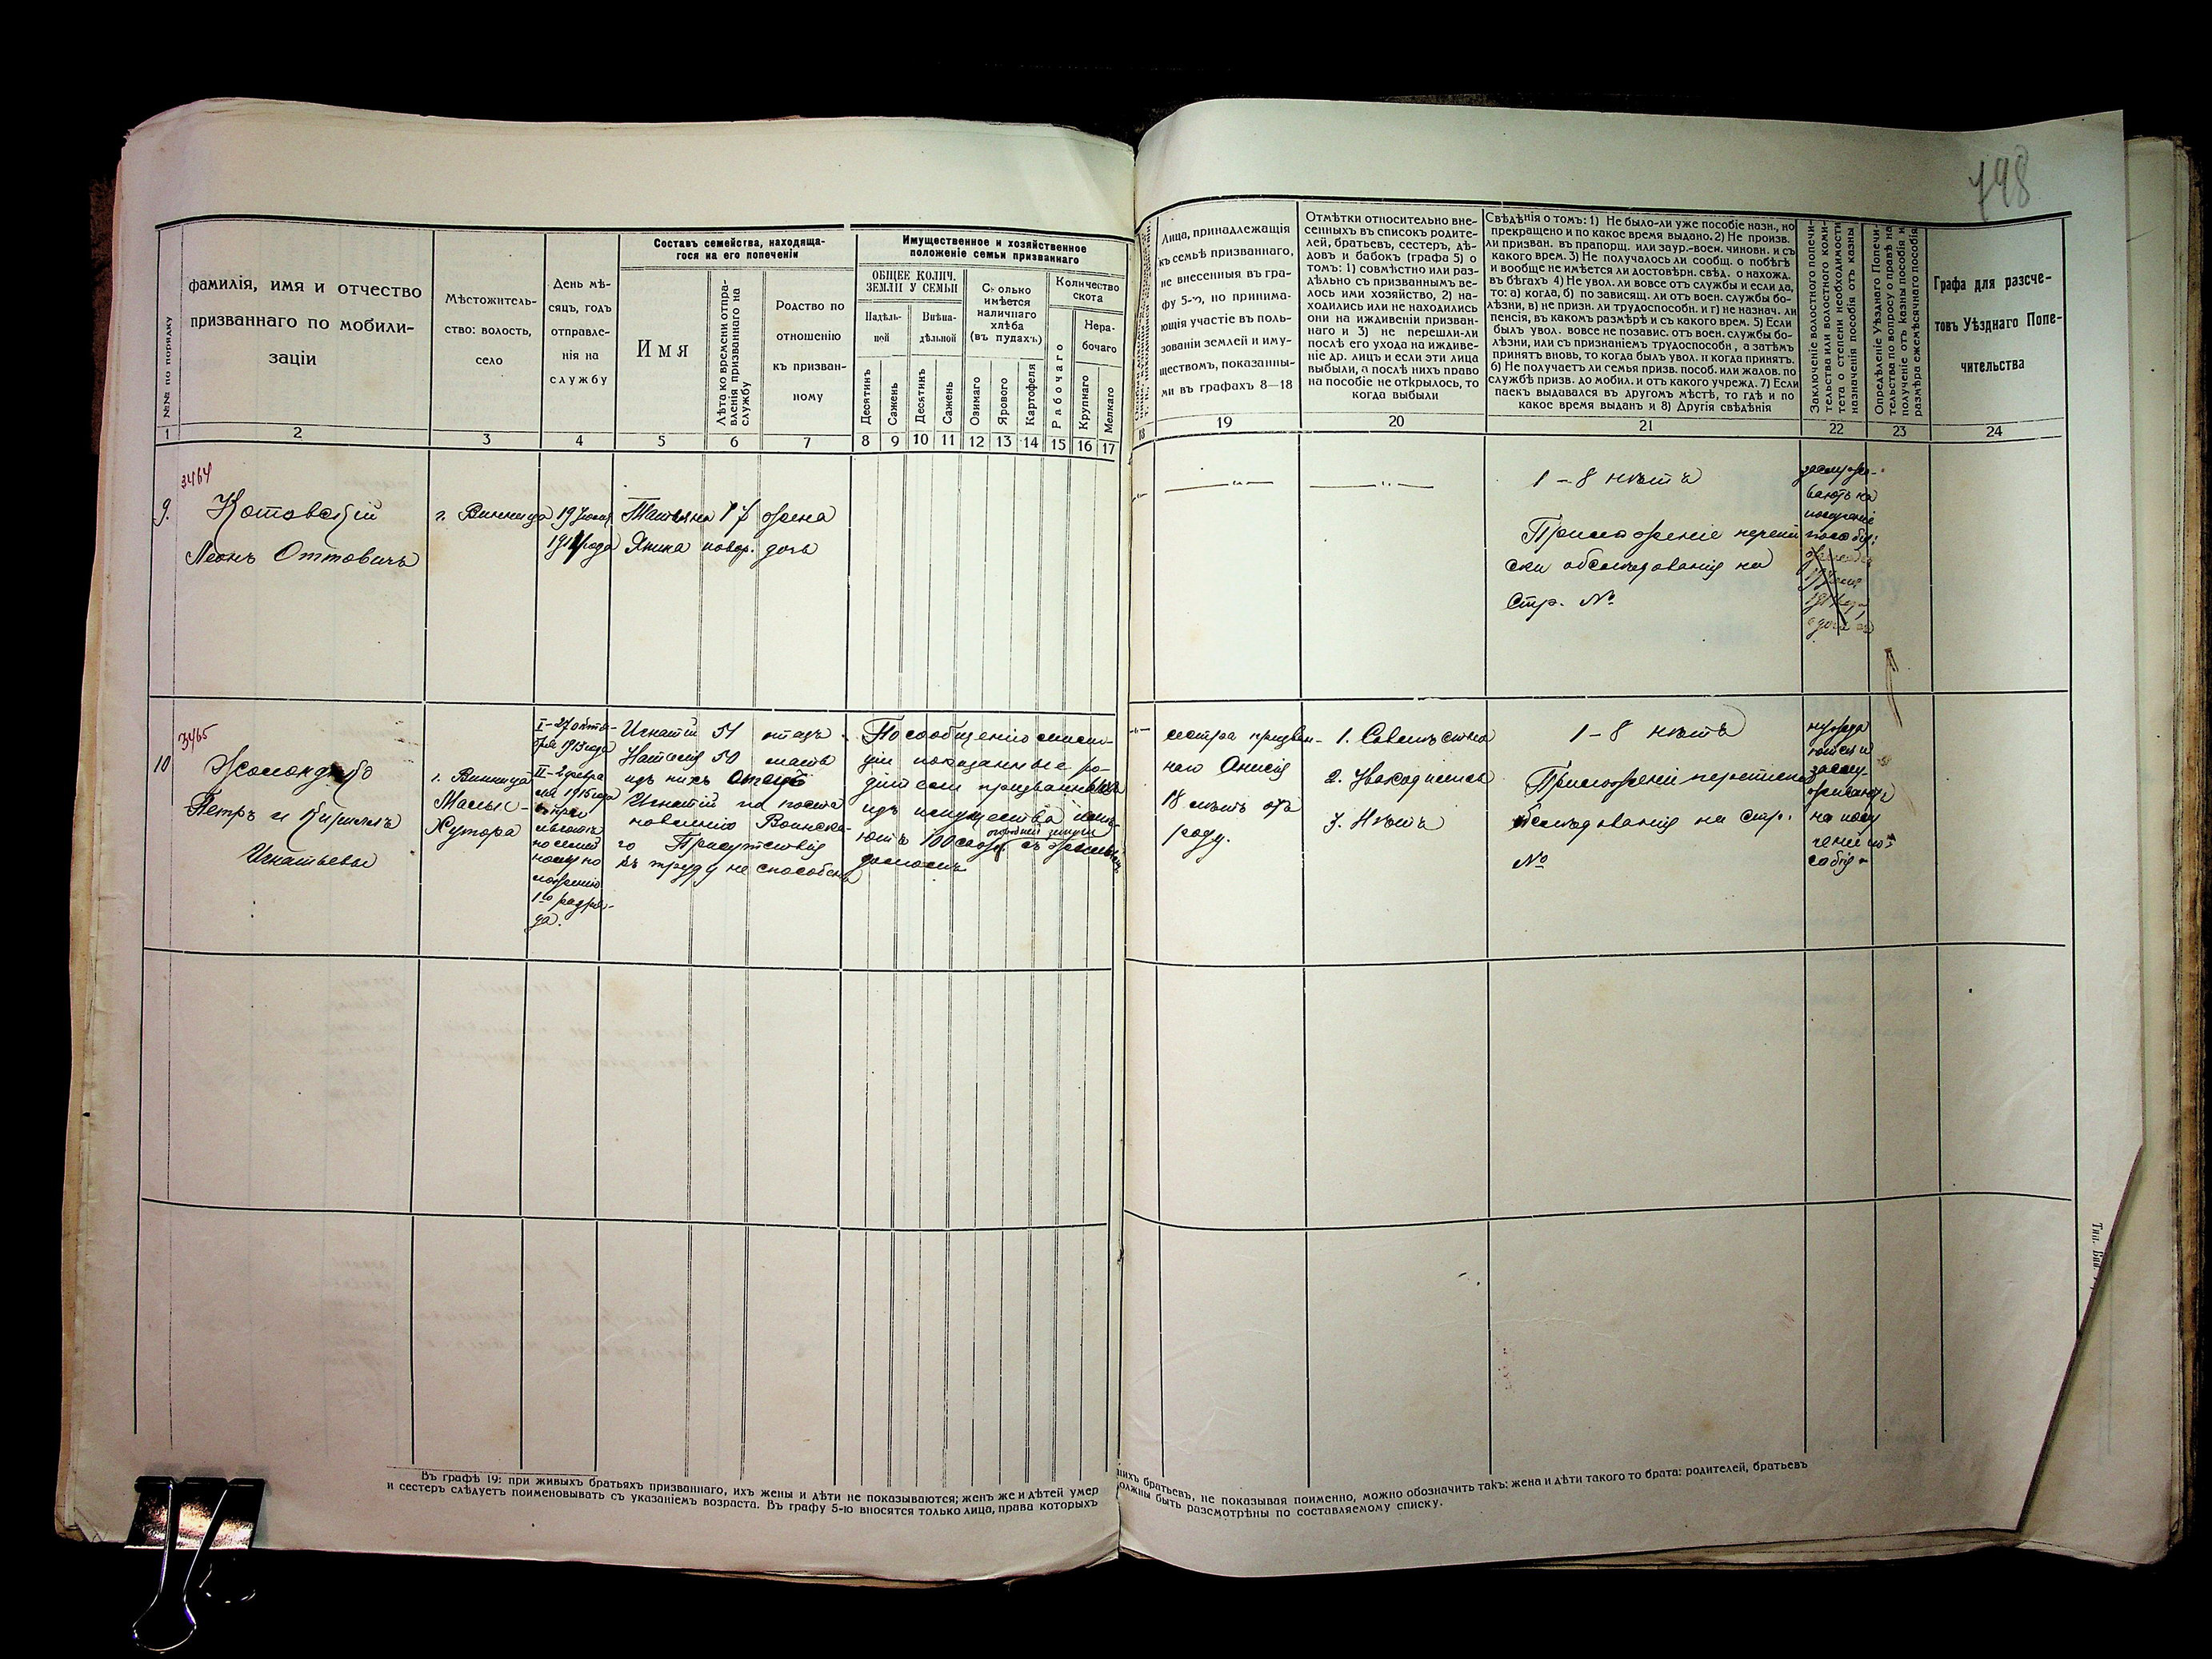 798
Составъ семейства, находяща-
гося на его попеченіи
Имущественное и хозяйственное
положеніе семьи призваннаго
№№ по порядку
фамилія, имя и отчество
призваннаго по мобили-
заціи
Мѣстожитель-
ство: волость,
село
День мѣ-
сяцъ, годъ
отправле-
нія на
службу
Имя
Лѣта ко времени отпра-
вленія призваннаго на
службу
Родство по
отношенію
къ призван-
ному
ОБЩЕЕ КОЛИЧ.
ЗЕМЛИ У СЕМЬИ
Надѣль-
ной
Внѣна-
дѣльной
Десятинъ
Сажень
Десятинъ
Сажень
имѣется
наличнаго
хлѣба
(въ пудахъ)
Озимаго
Ярового
Картофеля
Количество
скота
Рабочаго
Нера-
бочаго
Крупнаго
Мелкаго
1 2 3 4 5 6 7 8 9 10 11 12 13 14 15 16 17
Лица, принадлежащія
къ семьѣ призваннаго,
не внесенныя въ гра-
фу 5-ю, но принима-
ющія участіе въ поль-
зованіи землей и иму-
ществомъ, показанны-
ми въ графахъ 8—18
Отмѣтки относительно вне-
сенныхъ въ списокъ родите-
лей, братьевъ, сестеръ, дѣ-
довъ и бабокъ (графа 5) о
томъ: 1) совмѣстно или раз-
дѣльно съ призваннымъ ве-
лось ими хозяйство, 2) на-
ходились или не находились
они на иждивеніи призван-
наго и 3) не перешли-ли
послѣ его ухода на иждиве-
ніе др. лицъ и если эти лица
выбыли, а послѣ нихъ право
на пособіе не открылось, то
когда выбыли
Свѣдѣнія о томъ: 1) Не было-ли уже пособіе назн., но
прекращено и по какое время выдано. 2) Не произв.
ли призван. въ прапорщ. или заур.-воен. чиновн. и съ
какого врем. 3) Не получалось ли сообщ. о побѣгѣ
и вообще не имѣется ли достовѣрн. свѣд. о нахожд.
въ бѣгахъ 4) Не увол. ли вовсе отъ службы и если да,
то: а) когда, б) по зависящ. ли отъ воен. службы бо-
лѣзни, в) не призн. ли трудоспособн. и г) не назнач. ли
пенсія, въ какомъ размѣрѣ и съ какого врем. 5) Если
былъ увол. вовсе не позавис. отъ воен. службы бо-
лѣзни, или съ признаніемъ трудоспособн, а затѣмъ
принятъ вновь, то когда былъ увол. и когда принятъ.
6) Не получаетъ ли семья призв. пособ. или жалов. по
службѣ призв. до мобил. и отъ какого учрежд. 7) Если
паекъ выдавался въ другомъ мѣстѣ, то гдѣ и по
какое время выданъ и 8) Другія свѣдѣнія
Заключеніе волостного попечи-
тельства или волостного коми-
тета о степени необходимости
назначенія пособія отъ казны
Опредѣленіе Уѣзднаго Попечи-
тельства по вопросу о правѣ на
полученіе отъ казны пособія и
размѣра ежемѣсячнаго пособія
Графа для разсче-
товъ Уѣзднаго Попе-
чительства
18 19 20 21 22 23 24
3464
9.
Котовскій
Леонъ Оттовичъ
г. Винница
Татьяна
жена
Янина новор. дочь
1–8 нѣтъ
Приложеніе перепи
ски обслѣдованія на
Стр. №
3465
10
Петръ и Кириллъ
Игнатьевы
г. Винница
Малые
Хутора
I–27 октя-
бря 1913 года
II–2 февра
ля 1915 года
1го разря-
да.
Игнатій 51 отецъ
Наталія 50 мать
изъ нихъ отецъ
Игнатій по поста
новленію Воинска-
го Присутствія
къ труду не способенъ
По сообщенію
показанные ро-
домомъ
сестра призван-
наго Анисія
18 лѣтъ отъ
роду.
1. Совмѣстно
2. Находились
3. Нѣтъ
1–8 нѣтъ
Приложеніе переписка
обслѣдованія на стр.
№
Въ графѣ 19: при живыхъ братьяхъ призваннаго, ихъ жены и дѣти не показываются; женъ же и дѣтей умер
шихъ братьевъ, не показывая поименно, можно обозначить такъ: жена и дѣти такого то брата: родителей, братьевъ
и сестеръ слѣдуетъ поименовывать съ указаніемъ возраста. Въ графу 5-ю вносятся только лица, права которыхъ
должны быть разсмотрѣны по составляемому списку.